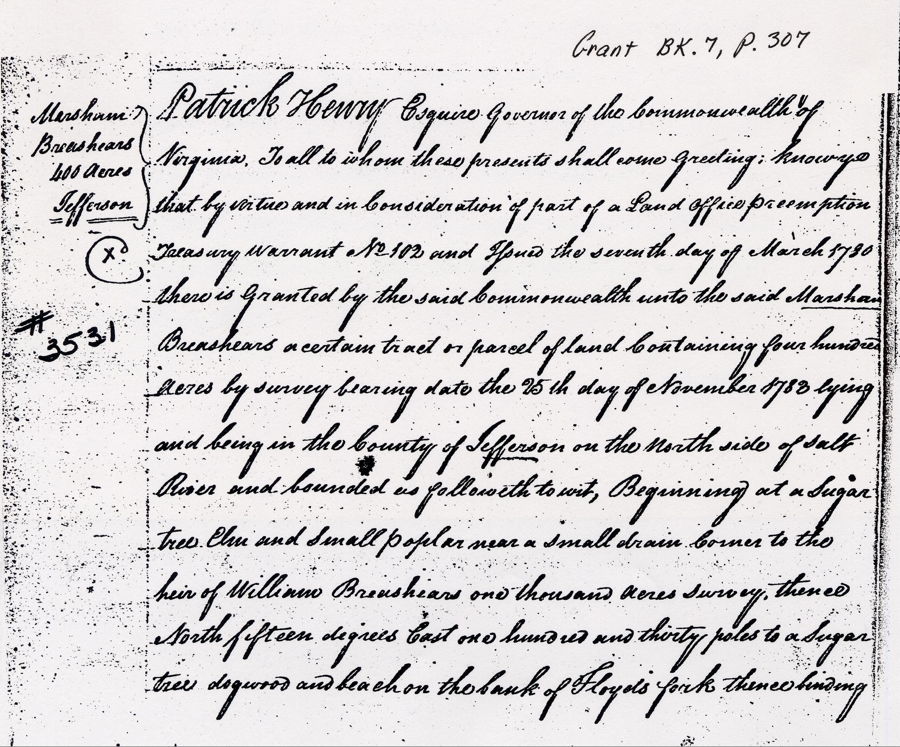 Grant BK. 7, P. 307
Marsham
Breashears
400 Acres
Jefferson
X
#
3531
Patrick Henry Esquire Governor of the Commonwealth of
Virginia, To all to whom these presents shall come Greeting: know ye
that by virtue and in Consideration of part of a Land Office Preemption
Treasury Warrant No 102 and Issued the seventh day of March 1780
there is Granted by the said Commonwealth unto the said Marsham
Breashears a certain tract or parcel of land Containing four hundred
Acres by survey bearing date the 25th day of November 1783 lying
and being in the County of Jefferson on the North side of Salt
River and bounded as followeth to wit, Beginning at a Sugar
tree Elm and Small poplar near a small drain Corner to the
heir of William Breashears one thousand Acres Survey, thence
North fifteen degrees East one hundred and thirty poles to a Sugar
tree dogwood and beach on the bank of Floyds fork thence binding